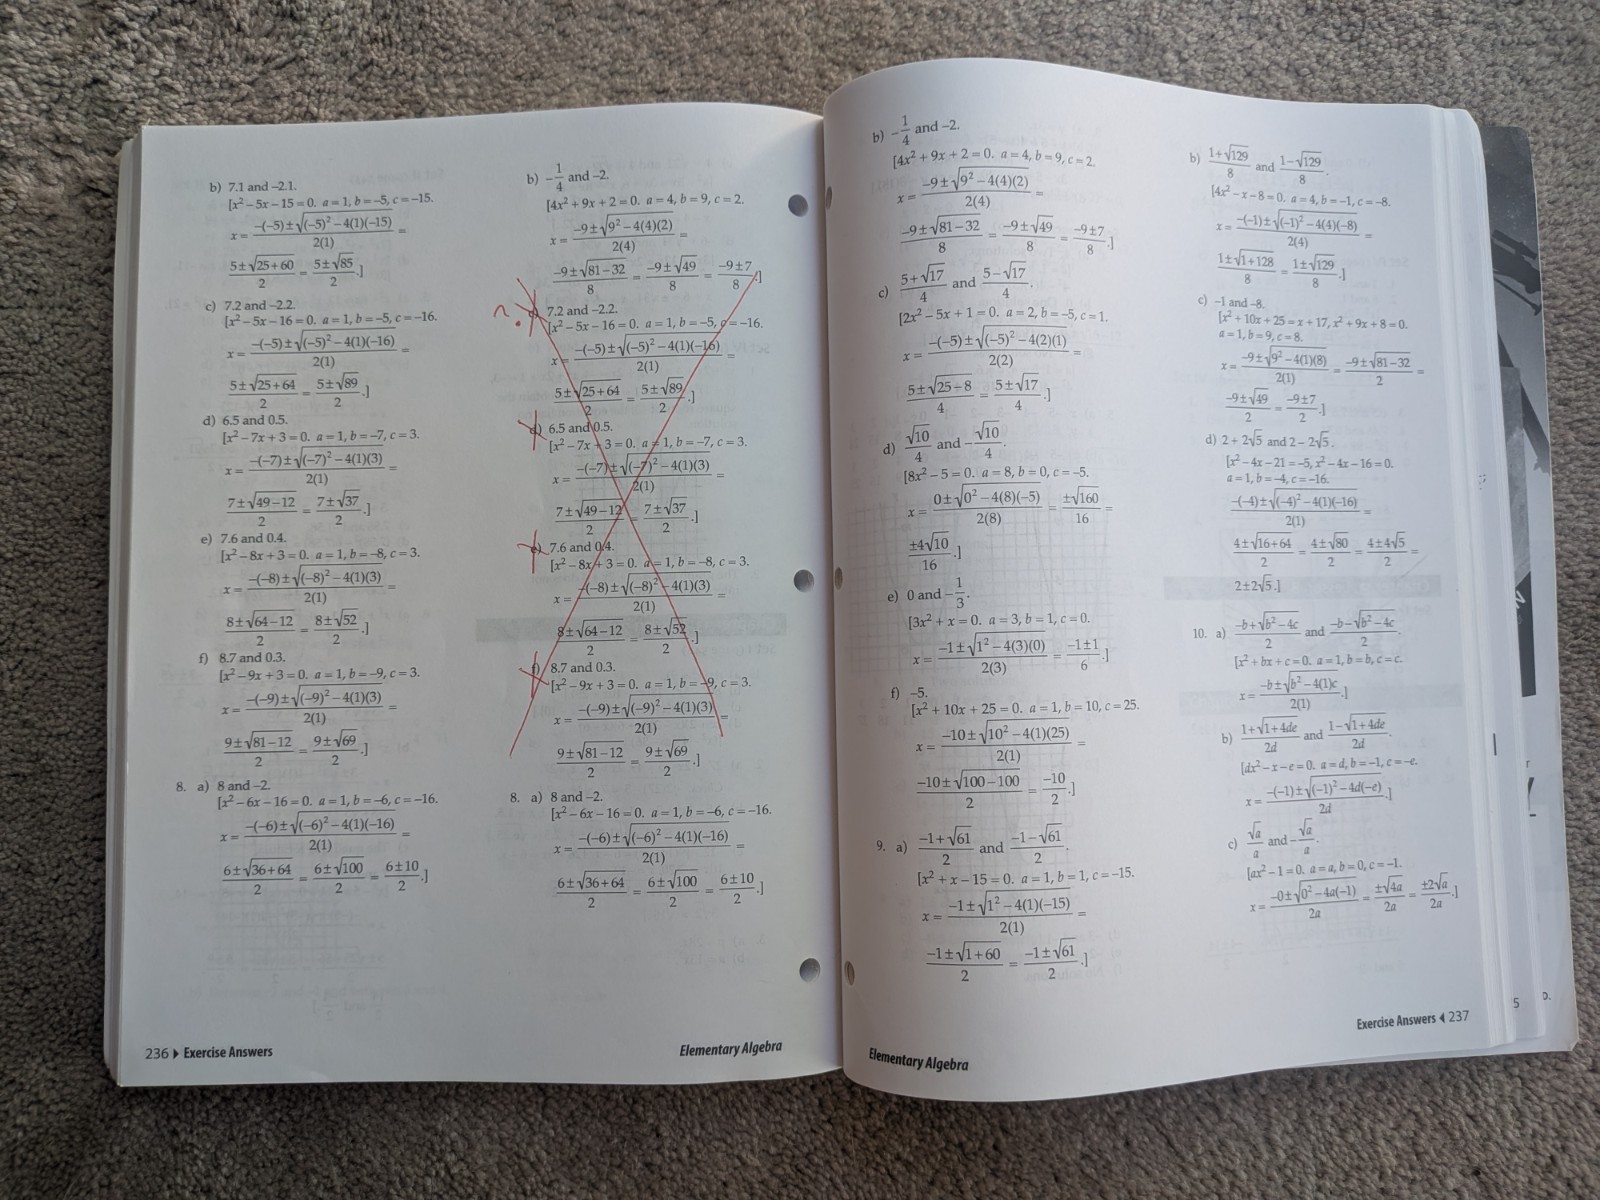 b) 7.1 and –2.1.
[x² – 5x – 15 = 0. a = 1, b = –5, c = –15.
x = (–(–5) ± √((–5)² – 4(1)(–15)))/(2(1)) =
(5 ± √(25 + 60))/2 = (5 ± √85)/2 .]
c) 7.2 and –2.2.
[x² – 5x – 16 = 0. a = 1, b = –5, c = –16.
x = (–(–5) ± √((–5)² – 4(1)(–16)))/(2(1)) =
(5 ± √(25 + 64))/2 = (5 ± √89)/2 .]
d) 6.5 and 0.5.
[x² – 7x + 3 = 0. a = 1, b = –7, c = 3.
x = (–(–7) ± √((–7)² – 4(1)(3)))/(2(1)) =
(7 ± √(49 – 12))/2 = (7 ± √37)/2 .]
e) 7.6 and 0.4.
[x² – 8x + 3 = 0. a = 1, b = –8, c = 3.
x = (–(–8) ± √((–8)² – 4(1)(3)))/(2(1)) =
(8 ± √(64 – 12))/2 = (8 ± √52)/2 .]
f) 8.7 and 0.3.
[x² – 9x + 3 = 0. a = 1, b = –9, c = 3.
x = (–(–9) ± √((–9)² – 4(1)(3)))/(2(1)) =
(9 ± √(81 – 12))/2 = (9 ± √69)/2 .]
8. a) 8 and –2.
[x² – 6x – 16 = 0. a = 1, b = –6, c = –16.
x = (–(–6) ± √((–6)² – 4(1)(–16)))/(2(1)) =
(6 ± √(36 + 64))/2 = (6 ± √100)/2 = (6 ± 10)/2 .]
b) –1/4 and –2.
[4x² + 9x + 2 = 0. a = 4, b = 9, c = 2.
x = (–9 ± √(9² – 4(4)(2)))/(2(4)) =
(–9 ± √(81 – 32))/8 = (–9 ± √49)/8 = (–9 ± 7)/8 .]
?
c) 7.2 and –2.2.
[x² – 5x – 16 = 0. a = 1, b = –5, c = –16.
x = (–(–5) ± √((–5)² – 4(1)(–16)))/(2(1)) =
(5 ± √(25 + 64))/2 = (5 ± √89)/2 .]
d) 6.5 and 0.5.
[x² – 7x + 3 = 0. a = 1, b = –7, c = 3.
x = (–(–7) ± √((–7)² – 4(1)(3)))/(2(1)) =
(7 ± √(49 – 12))/2 = (7 ± √37)/2 .]
e) 7.6 and 0.4.
[x² – 8x + 3 = 0. a = 1, b = –8, c = 3.
x = (–(–8) ± √((–8)² – 4(1)(3)))/(2(1)) =
(8 ± √(64 – 12))/2 = (8 ± √52)/2 .]
f) 8.7 and 0.3.
[x² – 9x + 3 = 0. a = 1, b = –9, c = 3.
x = (–(–9) ± √((–9)² – 4(1)(3)))/(2(1)) =
(9 ± √(81 – 12))/2 = (9 ± √69)/2 .]
8. a) 8 and –2.
[x² – 6x – 16 = 0. a = 1, b = –6, c = –16.
x = (–(–6) ± √((–6)² – 4(1)(–16)))/(2(1)) =
(6 ± √(36 + 64))/2 = (6 ± √100)/2 = (6 ± 10)/2 .]
236 ▶ Exercise Answers
Elementary Algebra
b) –1/4 and –2.
[4x² + 9x + 2 = 0. a = 4, b = 9, c = 2.
x = (–9 ± √(9² – 4(4)(2)))/(2(4)) =
(–9 ± √(81 – 32))/8 = (–9 ± √49)/8 = (–9 ± 7)/8 .]
c) (5 + √17)/4 and (5 – √17)/4 .
[2x² – 5x + 1 = 0. a = 2, b = –5, c = 1.
x = (–(–5) ± √((–5)² – 4(2)(1)))/(2(2)) =
(5 ± √(25 – 8))/4 = (5 ± √17)/4 .]
d) √10/4 and –√10/4 .
[8x² – 5 = 0. a = 8, b = 0, c = –5.
x = (0 ± √(0² – 4(8)(–5)))/(2(8)) = (±√160)/16 =
(±4√10)/16 .]
e) 0 and –1/3 .
[3x² + x = 0. a = 3, b = 1, c = 0.
x = (–1 ± √(1² – 4(3)(0)))/(2(3)) = (–1 ± 1)/6 .]
f) –5.
[x² + 10x + 25 = 0. a = 1, b = 10, c = 25.
x = (–10 ± √(10² – 4(1)(25)))/(2(1)) =
(–10 ± √(100 – 100))/2 = –10/2 .]
9. a) (–1 + √61)/2 and (–1 – √61)/2 .
[x² + x – 15 = 0. a = 1, b = 1, c = –15.
x = (–1 ± √(1² – 4(1)(–15)))/(2(1)) =
(–1 ± √(1 + 60))/2 = (–1 ± √61)/2 .]
b) (1 + √129)/8 and (1 – √129)/8 .
[4x² – x – 8 = 0. a = 4, b = –1, c = –8.
x = (–(–1) ± √((–1)² – 4(4)(–8)))/(2(4)) =
(1 ± √(1 + 128))/8 = (1 ± √129)/8 .]
c) –1 and –8.
[x² + 10x + 25 = x + 17, x² + 9x + 8 = 0.
a = 1, b = 9, c = 8.
x = (–9 ± √(9² – 4(1)(8)))/(2(1)) = (–9 ± √(81 – 32))/2 =
(–9 ± √49)/2 = (–9 ± 7)/2 .]
d) 2 + 2√5 and 2 – 2√5 .
[x² – 4x – 21 = –5, x² – 4x – 16 = 0.
a = 1, b = –4, c = –16.
(–(–4) ± √((–4)² – 4(1)(–16)))/(2(1)) =
(4 ± √(16 + 64))/2 = (4 ± √80)/2 = (4 ± 4√5)/2 =
2 ± 2√5 .]
10. a) (–b + √(b² – 4c))/2 and (–b – √(b² – 4c))/2 .
[x² + bx + c = 0. a = 1, b = b, c = c.
x = (–b ± √(b² – 4(1)c))/(2(1)) .]
b) (1 + √(1 + 4de))/2d and (1 – √(1 + 4de))/2d .
[dx² – x – e = 0. a = d, b = –1, c = –e.
x = (–(–1) ± √((–1)² – 4d(–e)))/2d .]
c) √a/a and –√a/a .
[ax² – 1 = 0. a = a, b = 0, c = –1.
x = (–0 ± √(0² – 4a(–1)))/2a = (±√4a)/2a = (±2√a)/2a .]
Elementary Algebra
Exercise Answers ◀ 237
5
D.